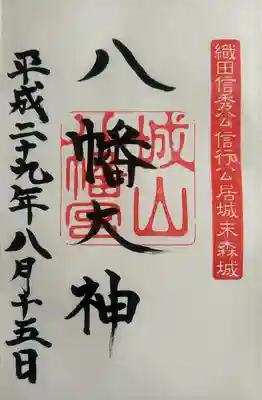 織田信秀公信行公居城末森城
八幡大神
城山
八幡宮
平成二十九年八月十五日